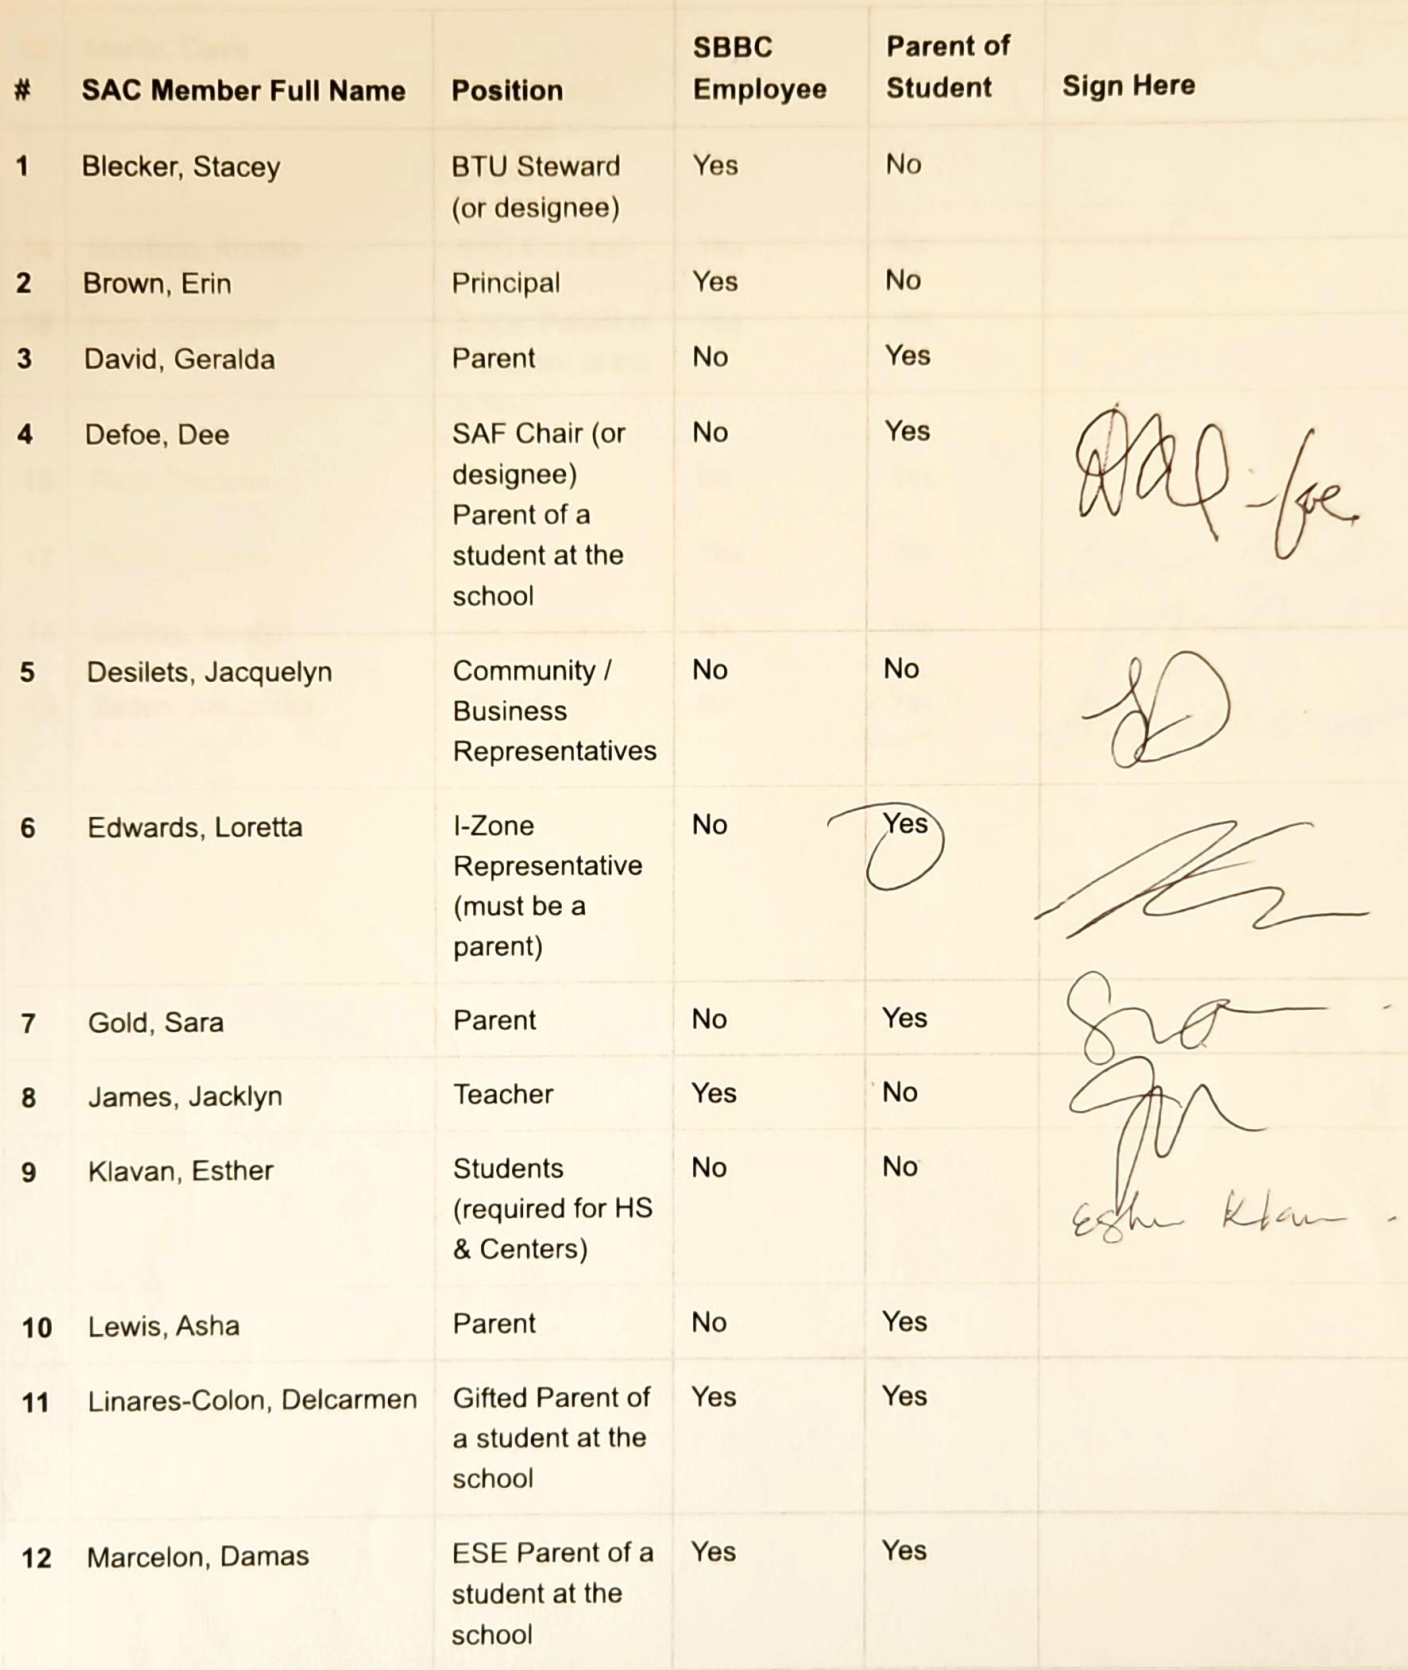 # SAC Member Full Name Position SBBC Employee Parent of Student Sign Here
1 Blecker, Stacey BTU Steward Yes No
(or designee)
2 Brown, Erin Principal Yes No
3 David, Geralda Parent No Yes
4 Defoe, Dee SAF Chair (or No Yes
designee)
Parent of a
student at the
school
5 Desilets, Jacquelyn Community / No No
Business
Representatives
6 Edwards, Loretta I-Zone No Yes
Representative
(must be a
parent)
7 Gold, Sara Parent No Yes
8 James, Jacklyn Teacher Yes No
9 Klavan, Esther Students No No
(required for HS
& Centers)
10 Lewis, Asha Parent No Yes
11 Linares-Colon, Delcarmen Gifted Parent of Yes Yes
a student at the
school
12 Marcelon, Damas ESE Parent of a Yes Yes
student at the
school